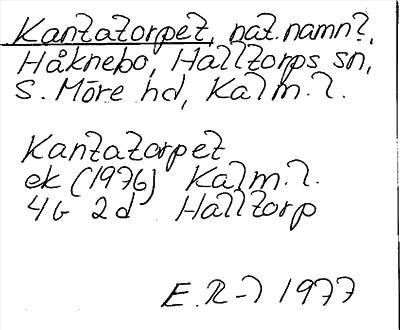 Kantatorpet, nat.namn?,
Håknebo, Halltorps sn,
S. Möre hd, Kalm. l.
Kantatorpet
ek (1976) Kalm. l.
4G 2d Halltorp
E.R-l 1977